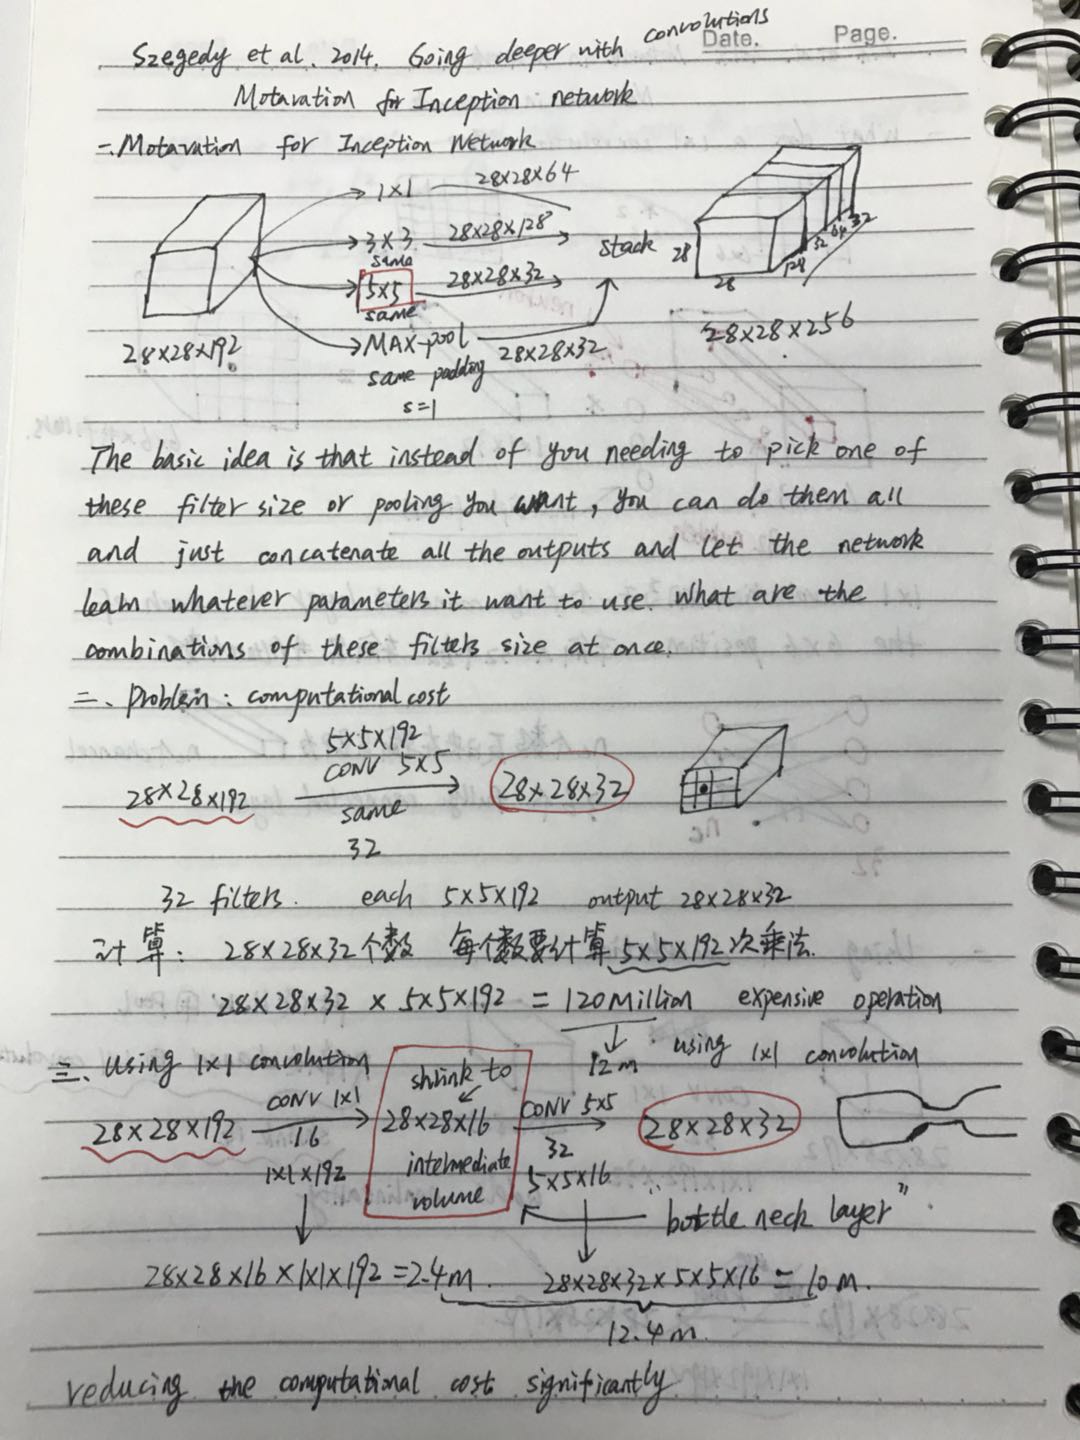 Szegedy et al. 2014. Going deeper with convolutions
Date. Page.
Motavation for Inception network
一. Motavation for Inception Network
1×1 28×28×64
3×3 28×28×128
same
5×5 28×28×32
same
MAX-pool 28×28×32
same padding
s=1
28×28×192
stack
28 28 128 32 64 32
28×28×256
The basic idea is that instead of you needing to pick one of
these filter size or pooling you want, you can do them all
and just concatenate all the outputs and let the network
learn whatever parameters it want to use. What are the
combinations of these filters size at once.
二、Problem: computational cost
5×5×192
CONV 5×5
28×28×192 28×28×32
same
32
nc
32 filters. each 5×5×192 output 28×28×32
计算: 28×28×32个数 每个数要计算5×5×192次乘法.
28×28×32 × 5×5×192 = 120Million expensive operation
12m using 1×1 convolution
三、Using 1×1 convolution
CONV 1×1 shrink to CONV 5×5
28×28×192 28×28×16 28×28×32
16 32
1×1×192 intermediate 5×5×16
volume
"bottle neck layer"
28×28×16×1×1×192=2.4m. 28×28×32×5×5×16=10m.
12.4m.
reducing the computational cost significantly